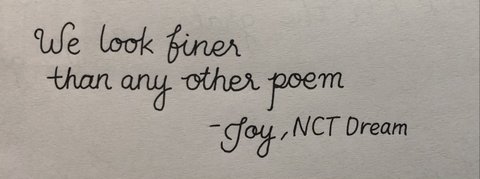 We look finer
than any other poem
-Joy, NCT Dream